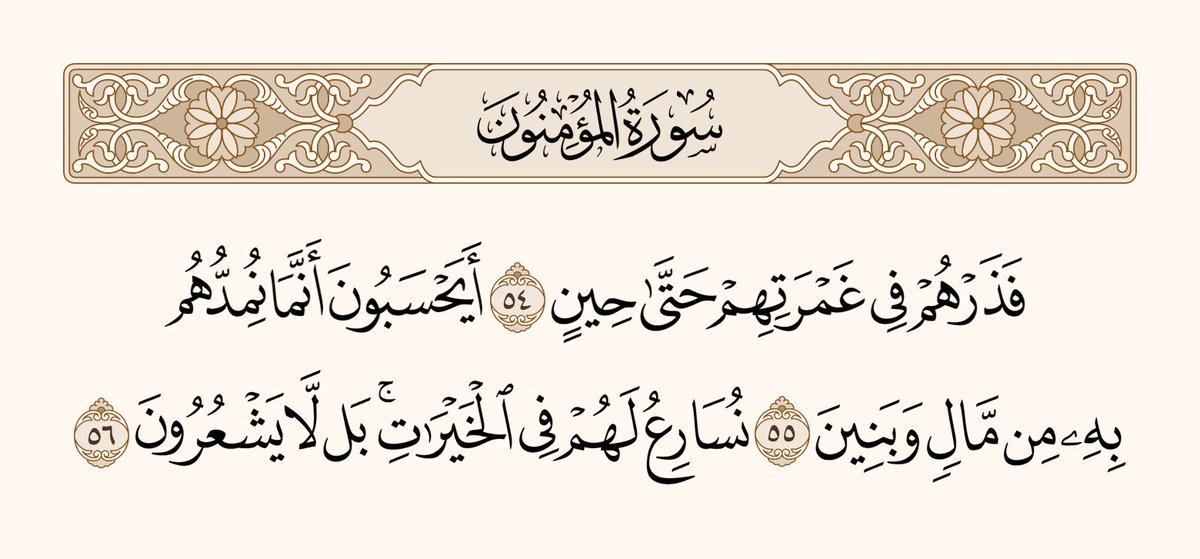 سُورَةُ الْمُؤْمِنُونَ
فَذَرْهُمْ فِى غَمْرَتِهِمْ حَتَّىٰ حِينٍ ٥٤ أَيَحْسَبُونَ أَنَّمَا نُمِدُّهُم
بِهِۦ مِن مَّالٍ وَبَنِينَ ٥٥ نُسَارِعُ لَهُمْ فِى ٱلْخَيْرَٰتِ ۚ بَل لَّا يَشْعُرُونَ ٥٦